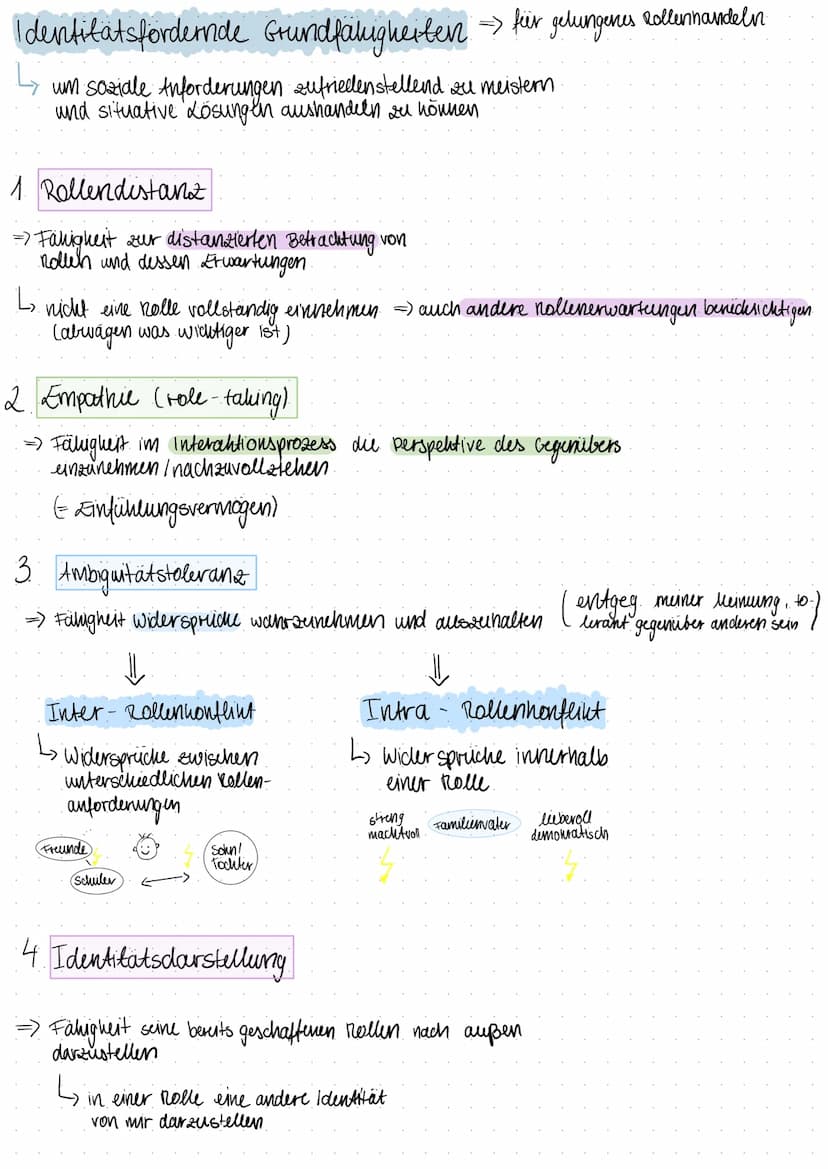 Identitätsfördernde Grundfähigkeiten => für gelungenes Rollenhandeln
↳ um soziale Anforderungen zufriedenstellend zu meistern
und situative Lösungen aushandeln zu können
1. Rollendistanz
=> Fähigkeit zur distanzierten Betrachtung von
Rollen und dessen Erwartungen
↳ nicht eine Rolle vollständig einnehmen => auch andere Rollenerwartungen berücksichtigen
(abwägen was wichtiger ist)
2. Empathie (role-taking)
=> Fähigkeit im Interaktionsprozess die Perspektive des Gegenübers
einzunehmen/nachzuvollziehen
(= Einfühlungsvermögen)
3. Ambiguitätstoleranz
=> Fähigkeit Widersprüche wahrzunehmen und auszuhalten (entgeg. meiner Meinung, to-
lerant gegenüber anderen sein)
Inter-Rollenkonflikt
↳ Widersprüche zwischen
unterschiedlichen Rollen-
anforderungen
Freunde
Schüler
Sohn/
Tochter
Intra-Rollenkonflikt
↳ Widersprüche innerhalb
einer Rolle
streng
machtvoll
Familienvater
liebevoll
demokratisch
4. Identitätsdarstellung
=> Fähigkeit seine bereits geschaffenen Rollen nach außen
darzustellen
↳ in einer Rolle eine andere Identität
von mir darzustellen